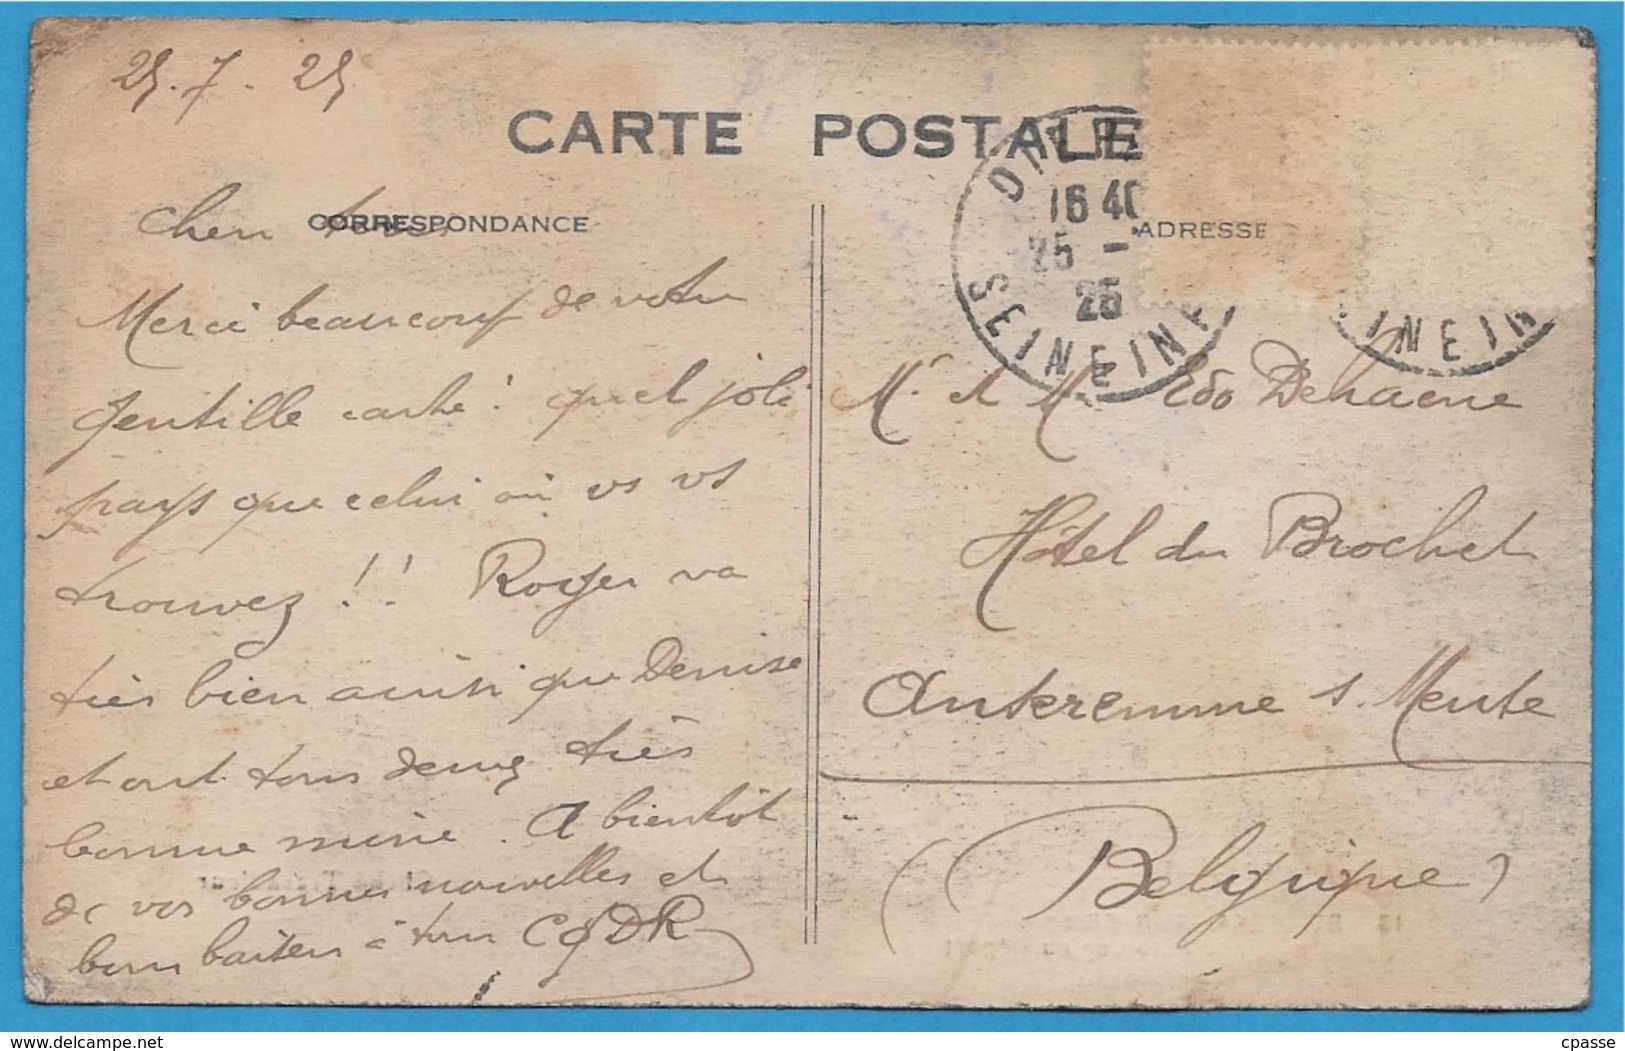 25.7.25
CARTE POSTALE
CORRESPONDANCE
ADRESSE
DIEPP
16 40
25 -
25
SEINE INF
INE IN
Chers tous
Merci beaucoup de votre
gentille carte! quel joli
pays que celui où vs vs
trouvez!! Roger va
très bien ainsi que Denise
et ont tous deux très
bonne mine. A bientôt
de vos bonnes nouvelles et
bons baisers à tous CGDR
Mr et Mme Edo Dehaene
Hôtel du Brochet
Anseremme s. Meuse
(Belgique)
cpasse